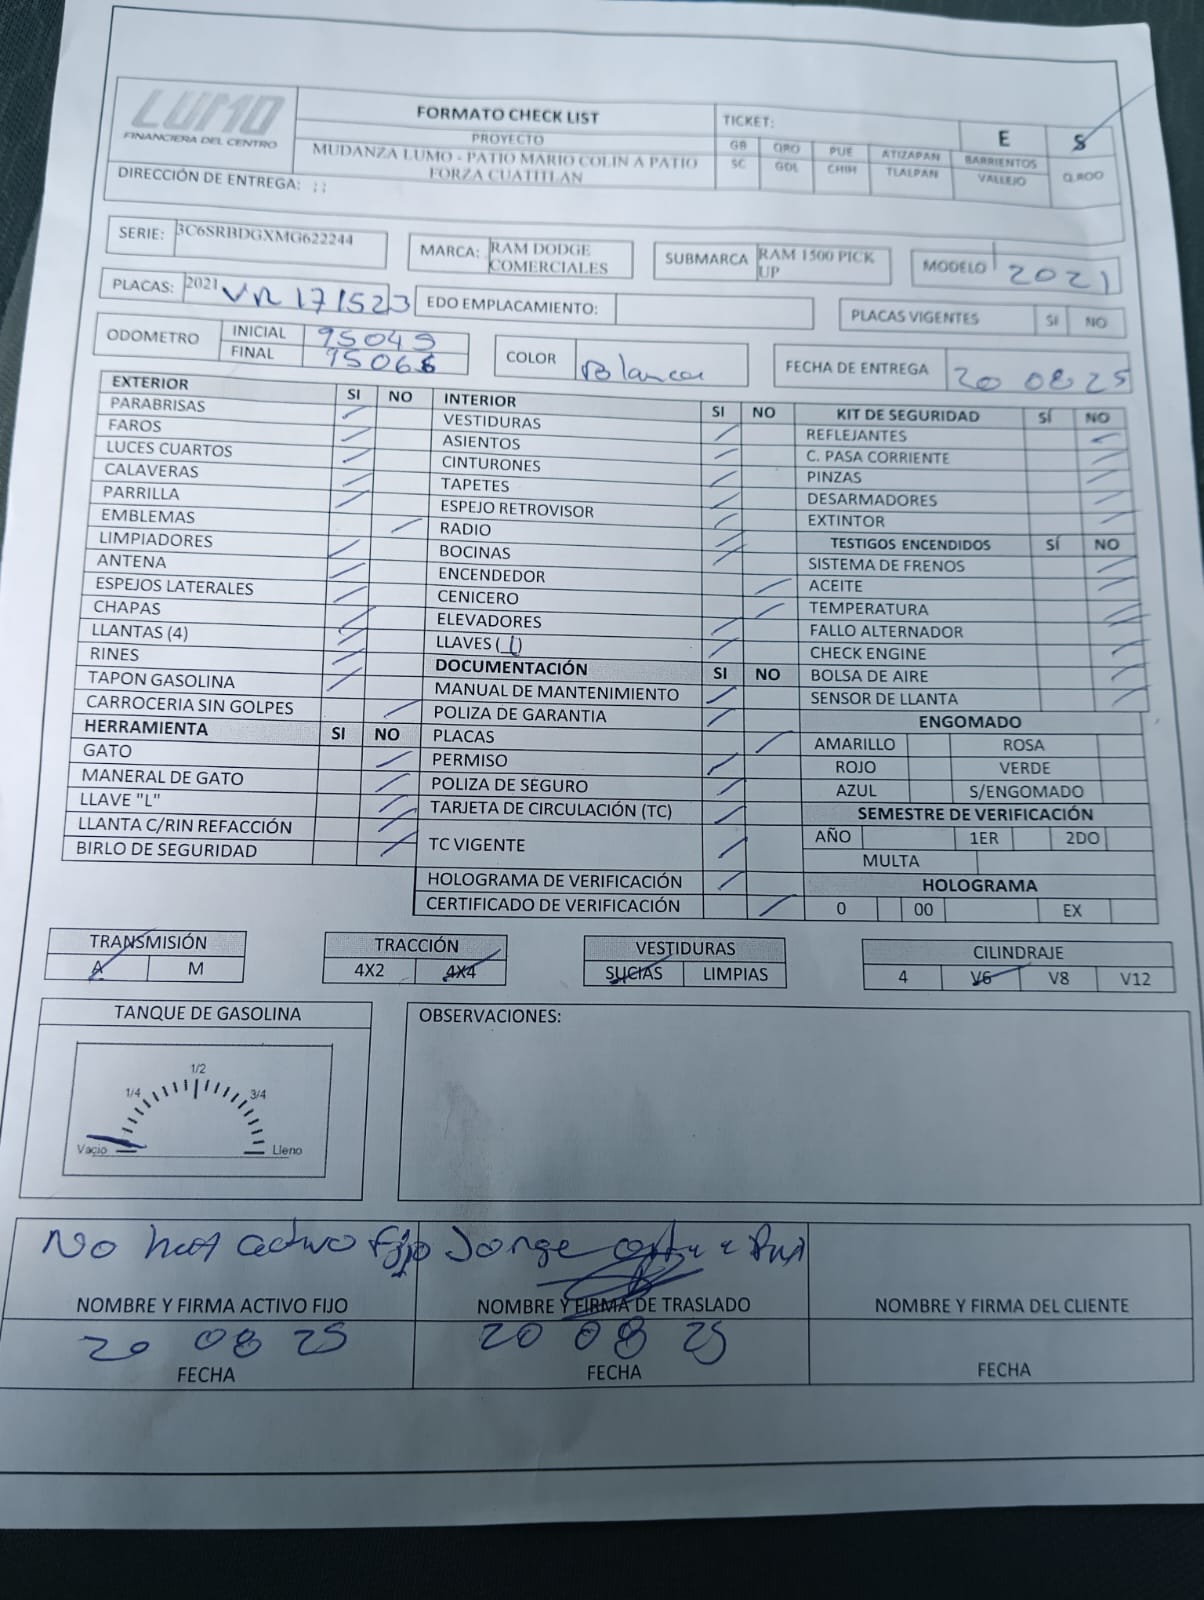 LUMO
FINANCIERA DEL CENTRO
FORMATO CHECK LIST
PROYECTO
MUDANZA LUMO - PATIO MARIO COLIN A PATIO
FORZA CUATITLAN
TICKET:
E S
GB QRO PUE ATIZAPAN BARRIENTOS Q.ROO
SC GDL CHIH TLALPAN VALLEJO
DIRECCIÓN DE ENTREGA: ; ;
SERIE: 3C6SRBDGXMG622244
MARCA: RAM DODGE
COMERCIALES
SUBMARCA RAM 1500 PICK
UP
MODELO 2021
PLACAS: 2021 VR 171523
EDO EMPLACAMIENTO:
PLACAS VIGENTES SI NO
ODOMETRO
INICIAL 95049
FINAL 95066
COLOR Blanca
FECHA DE ENTREGA 20 08 25
EXTERIOR SI NO
PARABRISAS
FAROS
LUCES CUARTOS
CALAVERAS
PARRILLA
EMBLEMAS
LIMPIADORES
ANTENA
ESPEJOS LATERALES
CHAPAS
LLANTAS (4)
RINES
TAPON GASOLINA
CARROCERIA SIN GOLPES
HERRAMIENTA SI NO
GATO
MANERAL DE GATO
LLAVE "L"
LLANTA C/RIN REFACCIÓN
BIRLO DE SEGURIDAD
INTERIOR SI NO
VESTIDURAS
ASIENTOS
CINTURONES
TAPETES
ESPEJO RETROVISOR
RADIO
BOCINAS
ENCENDEDOR
CENICERO
ELEVADORES
LLAVES (_1)
DOCUMENTACIÓN SI NO
MANUAL DE MANTENIMIENTO
POLIZA DE GARANTIA
PLACAS
PERMISO
POLIZA DE SEGURO
TARJETA DE CIRCULACIÓN (TC)
TC VIGENTE
HOLOGRAMA DE VERIFICACIÓN
CERTIFICADO DE VERIFICACIÓN
KIT DE SEGURIDAD SÍ NO
REFLEJANTES
C. PASA CORRIENTE
PINZAS
DESARMADORES
EXTINTOR
TESTIGOS ENCENDIDOS SÍ NO
SISTEMA DE FRENOS
ACEITE
TEMPERATURA
FALLO ALTERNADOR
CHECK ENGINE
BOLSA DE AIRE
SENSOR DE LLANTA
ENGOMADO
AMARILLO ROSA
ROJO VERDE
AZUL S/ENGOMADO
SEMESTRE DE VERIFICACIÓN
AÑO 1ER 2DO
MULTA
HOLOGRAMA
0 00 EX
TRANSMISIÓN
A M
TRACCIÓN
4X2 4X4
VESTIDURAS
SUCIAS LIMPIAS
CILINDRAJE
4 V6 V8 V12
TANQUE DE GASOLINA
1/4 1/2 3/4
Vacio Lleno
OBSERVACIONES:
No hay activo fijo Jorge
NOMBRE Y FIRMA ACTIVO FIJO
NOMBRE Y FIRMA DE TRASLADO
NOMBRE Y FIRMA DEL CLIENTE
20 08 25
20 08 25
FECHA
FECHA
FECHA